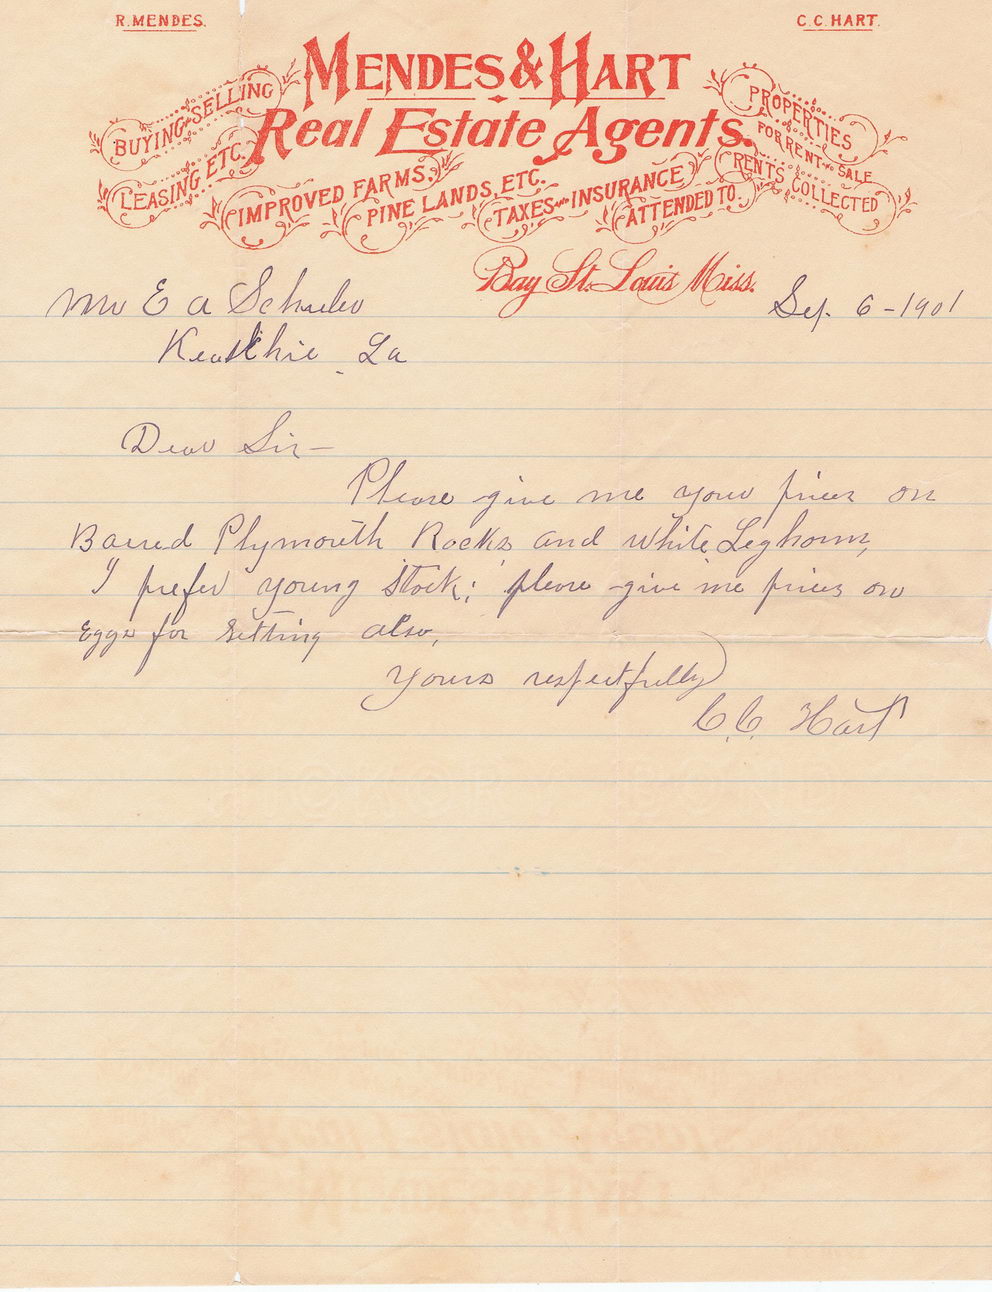 R. MENDES.
C. C. HART.
MENDES & HART
Real Estate Agents.
BUYING AND SELLING
LEASING ETC.
IMPROVED FARMS.
PINE LANDS, ETC.
TAXES AND INSURANCE
ATTENDED TO.
PROPERTIES
FOR RENT OR SALE
RENTS COLLECTED
Bay St. Louis Miss.
Sep. 6 - 1901
Mr E A Schuler
Keatchie La
Dear Sir -
Please give me your prices on
Barred Plymouth Rocks and White Leghorns,
I prefer young stock; please give me prices on
Eggs for setting also,
Yours respectfully
C. C. Hart